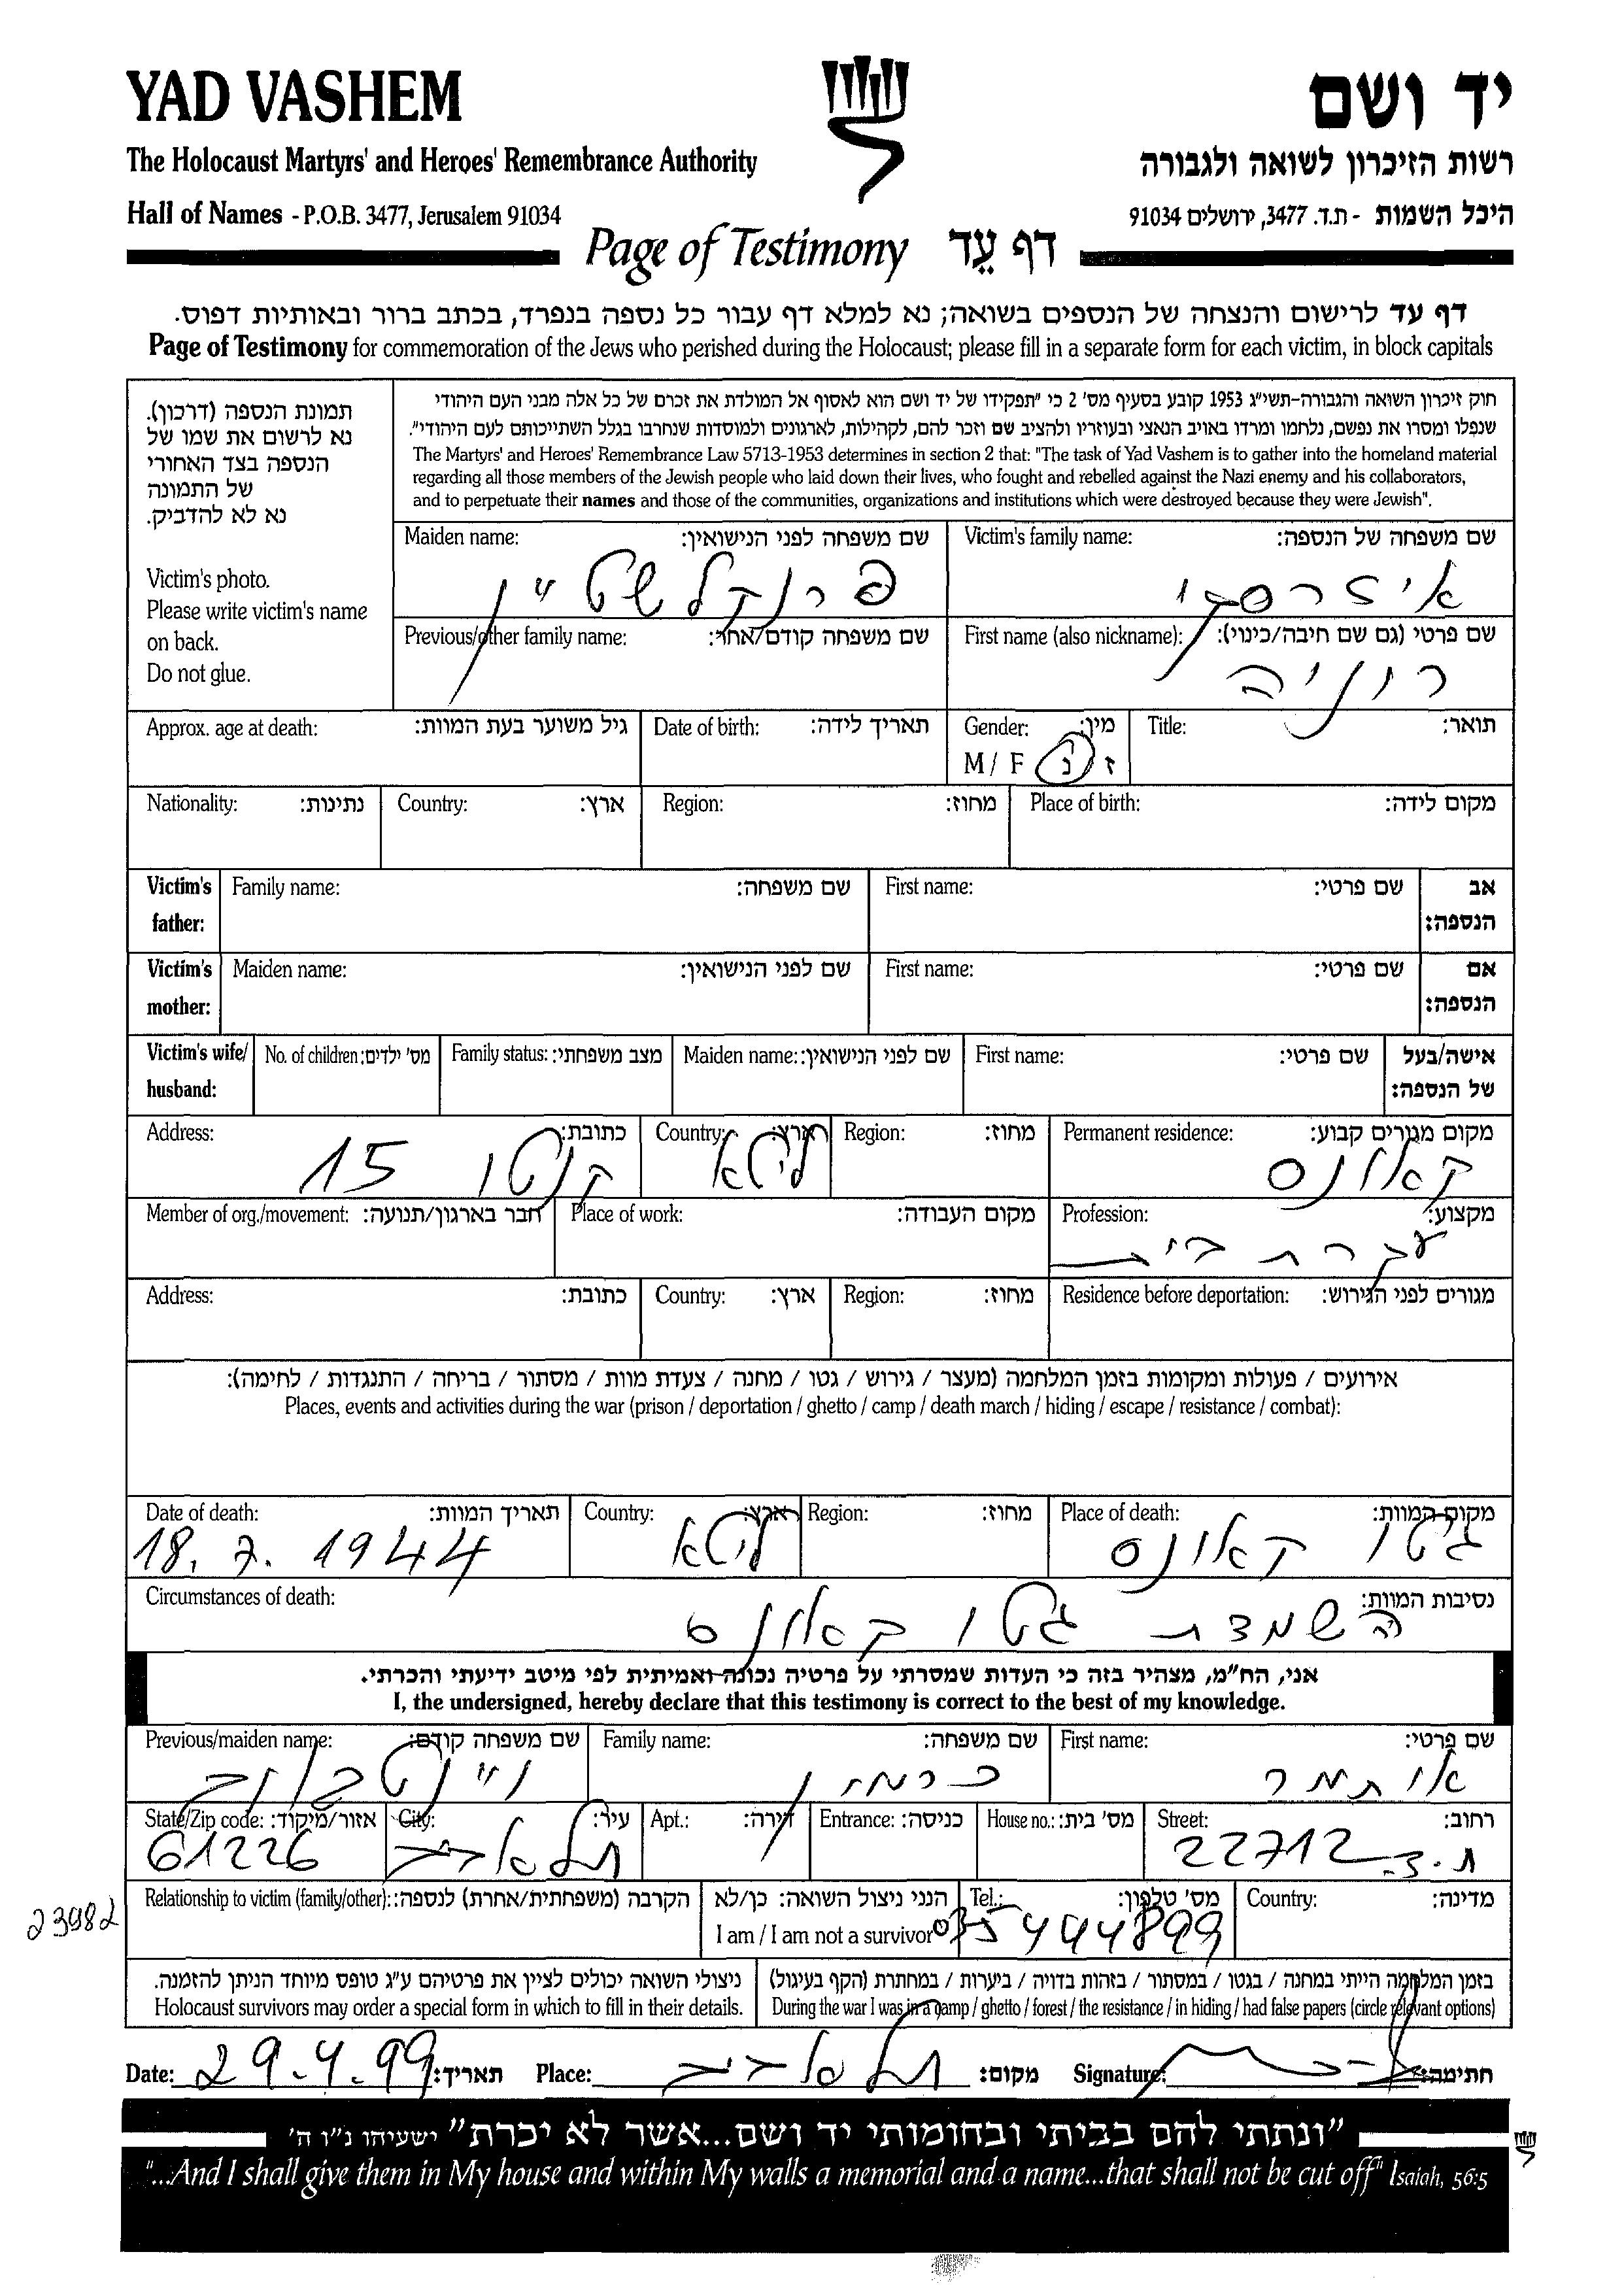 YAD VASHEM
יד ושם
The Holocaust Martyrs' and Heroes' Remembrance Authority
רשות הזיכרון לשואה ולגבורה
Hall of Names - P.O.B. 3477, Jerusalem 91034
היכל השמות - ת.ד. 3477, ירושלים 91034
Page of Testimony דף עֵד
דף עד לרישום והנצחה של הנספים בשואה; נא למלא דף עבור כל נספה בנפרד, בכתב ברור ובאותיות דפוס.
Page of Testimony for commemoration of the Jews who perished during the Holocaust; please fill in a separate form for each victim, in block capitals
תמונת הנספה (דרכון).
נא לרשום את שמו של
הנספה בצד האחורי
של התמונה
נא לא להדביק.
Victim's photo.
Please write victim's name
on back.
Do not glue.
חוק זיכרון השואה והגבורה-תשי"ג 1953 קובע בסעיף מס' 2 כי "תפקידו של יד ושם הוא לאסוף אל המולדת את זכרם של כל אלה מבני העם היהודי
שנפלו ומסרו את נפשם, נלחמו ומרדו באויב הנאצי ובעוזריו ולהציב שם וזכר להם, לקהילות, לארגונים ולמוסדות שנחרבו בגלל השתייכותם לעם היהודי".
The Martyrs' and Heroes' Remembrance Law 5713-1953 determines in section 2 that: "The task of Yad Vashem is to gather into the homeland material
regarding all those members of the Jewish people who laid down their lives, who fought and rebelled against the Nazi enemy and his collaborators,
and to perpetuate their names and those of the communities, organizations and institutions which were destroyed because they were Jewish".
Victim's family name: שם משפחה של הנספה:
איזרסקי
Maiden name: שם משפחה לפני הנישואין:
פרנקלשטיין
First name (also nickname): שם פרטי (גם שם חיבה/כינוי):
רוניה
Previous/other family name: שם משפחה קודם/אחר:
Title: תואר:
Gender: מין:
M / F ז / נ
Date of birth: תאריך לידה:
Approx. age at death: גיל משוער בעת המוות:
Place of birth: מקום לידה:
Region: מחוז:
Country: ארץ:
Nationality: נתינות:
Victim's father: אב הנספה:
First name: שם פרטי:
Family name: שם משפחה:
Victim's mother: אם הנספה:
First name: שם פרטי:
Maiden name: שם לפני הנישואין:
Victim's wife/ husband: אישה/בעל של הנספה:
First name: שם פרטי:
Maiden name: שם לפני הנישואין:
Family status: מצב משפחתי:
No. of children: מס' ילדים:
Permanent residence: מקום מגורים קבוע:
קאונס
Region: מחוז:
Country: ארץ:
ליטא
Address: כתובת:
קנטו 15
Profession: מקצוע:
עקרת בית
Place of work: מקום העבודה:
Member of org./movement: חבר בארגון/תנועה:
Residence before deportation: מגורים לפני הגירוש:
Region: מחוז:
Country: ארץ:
Address: כתובת:
אירועים / פעולות ומקומות בזמן המלחמה (מעצר / גירוש / גטו / מחנה / צעדת מוות / מסתור / בריחה / התנגדות / לחימה):
Places, events and activities during the war (prison / deportation / ghetto / camp / death march / hiding / escape / resistance / combat):
Place of death: מקום המוות:
גיטו קאונס
Region: מחוז:
Country: ארץ:
ליטא
Date of death: תאריך המוות:
18.7.1944
Circumstances of death: נסיבות המוות:
השמדת גטו קאונס
אני, הח"מ, מצהיר בזה כי העדות שמסרתי על פרטיה נכונה ואמיתית לפי מיטב ידיעתי והכרתי.
I, the undersigned, hereby declare that this testimony is correct to the best of my knowledge.
First name: שם פרטי:
אותמר
Family name: שם משפחה:
כרמון
Previous/maiden name: שם משפחה קודם:
Street: רחוב:
ת.ד. 22712
House no.: מס' בית:
Entrance: כניסה:
Apt.: דירה:
City: עיר:
תל אביב
State/Zip code: אזור/מיקוד:
61226
Country: מדינה:
Tel.: מס' טלפון:
03 5444899
הנני ניצול השואה: כן/לא
I am / I am not a survivor
Relationship to victim (family/other): הקרבה (משפחתית/אחרת) לנספה:
23982
בזמן המלחמה הייתי במחנה / בגטו / במסתור / בזהות בדויה / ביערות / במחתרת (הקף בעיגול)
During the war I was in a camp / ghetto / forest / the resistance / in hiding / had false papers (circle relevant options)
ניצולי השואה יכולים לציין את פרטיהם ע"ג טופס מיוחד הניתן להזמנה.
Holocaust survivors may order a special form in which to fill in their details.
Date: 29.4.99 תאריך: Place: תל אביב מקום: Signature: חתימה:
"ונתתי להם בביתי ובחומותי יד ושם...אשר לא יכרת" ישעיהו נ"ו ה'
"...And I shall give them in My house and within My walls a memorial and a name...that shall not be cut off" Isaiah, 56:5